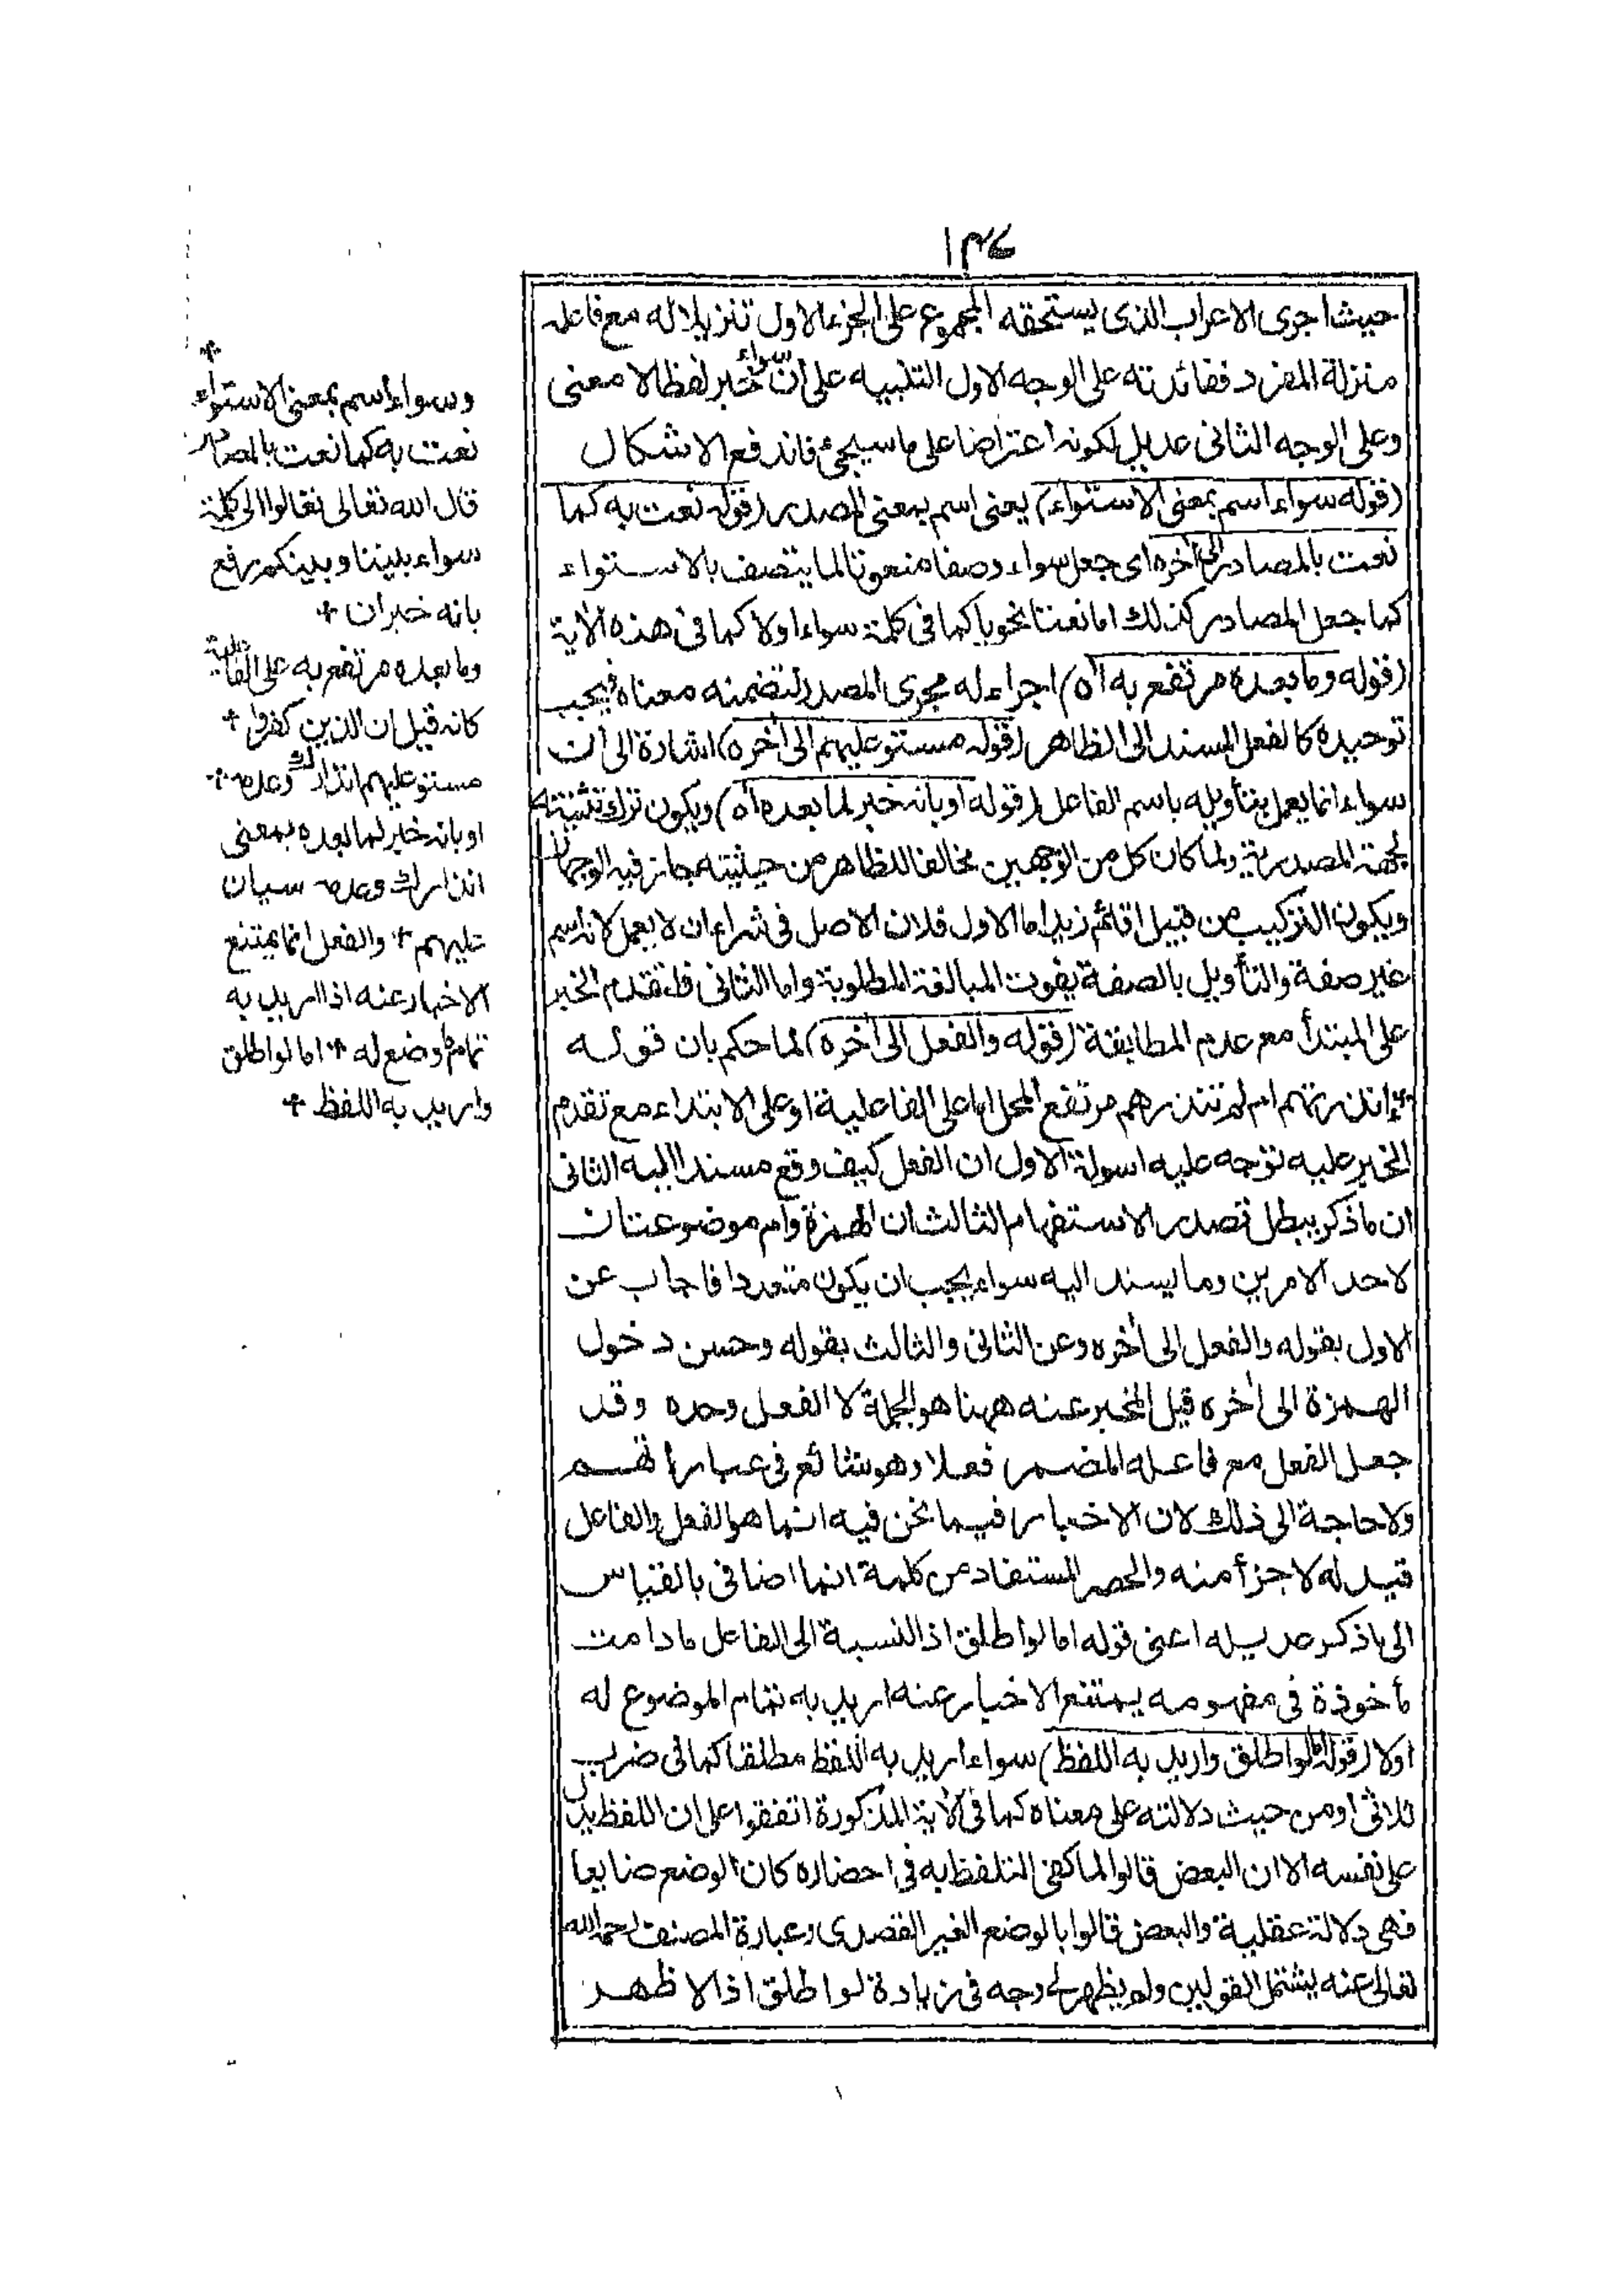 ١٣٤
حيث اجرى الاعراب الذى يستحقه المجموع على الجزء الاول تنزيلا له مع فاعله
منزلة المفرد ففائدته على الوجه الاول التنبيه على ان سواء خبر لفظا لا معنى
وعلى الوجه الثانى عديل لكونه اعتراضا على ما سيجئ فاندفع الاشكال
(قوله سواء اسم بمعنى الاستواء) يعنى اسم بمعنى المصدر (قوله نعت به كما
نعت بالمصادر الى اخره اى جعل سواء وصفا منعوتا لما يتصف بالاستواء
كما جعل المصادر كذلك اما نعتا نحويا كما فى كلمة سواء اولا كما فى هذه الاية
(قوله وما بعده مرتفع به اه) اجراء له مجرى المصدر لتضمنه معناه فيجب
توحيده كالفعل المسند الى الظاهر (قوله مستو عليهم الى اخره) اشارة الى ان
سواء انما يعمل بتأويله باسم الفاعل (قوله او بانه خبر لما بعده اه) ويكون ترك تثنيته
لجهة المصدرية ولما كان كل من الوجهين مخالفا للظاهر من حيثيته جاز فيه الوجهان
ويكون التركيب من قبيل اقائم زيد اما الاول فلان الاصل فى سواء ان لا يعمل لانه اسم
غير صفة والتأويل بالصفة يفوت المبالغة المطلوبة واما الثانى فلتقدم الخبر
على المبتدأ مع عدم المطابقة (قوله والفعل الى اخره) لما حكم بان قوله
ءانذرتهم ام لم تنذرهم مرتفع المحل اما على الفاعلية او على الابتداء مع تقدم
الخبر عليه توجه عليه اسولة الاول ان الفعل كيف وقع مسندا اليه الثانى
ان ما ذكر يبطل تصدر الاستفهام الثالث ان الهمزة وام موضوعتان
لاحد الامرين وما يسند اليه سواء يجب ان يكون متعددا فاجاب عن
الاول بقوله والفعل الى اخره وعن الثانى والثالث بقوله وحسن دخول
الهمزة الى اخره قيل المخبر عنه ههنا هو الجملة لا الفعل وحده وقد
جعل الفعل مع فاعله المضمر فعلا وهو شائع فى عباراتهم
ولا حاجة الى ذلك لان الاخبار فيما نحن فيه انما هو الفعل والفاعل
قيد له لا جزأ منه والحصر المستفاد من كلمة انما اضافى بالقياس
الى ما ذكر عديله اعنى قوله اما لو اطلق اذ النسبة الى الفاعل ما دامت
مأخوذة فى مفهومه يمتنع الاخبار عنه اريد به تمام الموضوع له
اولا (قوله اما لو اطلق واريد به اللفظ) سواء اريد به اللفظ مطلقا كما فى ضرب
ثلاثى او من حيث دلالته على معناه كما فى الاية المذكورة اتفقوا على ان اللفظ يدل
على نفسه الا ان البعض قالوا لما كفى التلفظ به فى احضاره كان الوضع ضايعا
فهى دلالة عقلية والبعض قالوا بالوضع الغير القصدى وعبارة المصنف رحمه الله
تعالى عنه يشتمل القولين ولم يظهر لى وجه فى زيادة لو اطلق اذ الاظهر
وسواء اسم بمعنى الاستواء
نعت به كما نعت بالمصادر
قال الله تعالى تعالوا الى كلمة
سواء بيننا وبينكم رفع
بانه خبر ان +
وما بعده مرتفع به على الفاعلية
كانه قيل ان الذين كفروا +
مستو عليهم انذارك وعدمه +
او بانه خبر لما بعده بمعنى
انذارك وعدمه سيان
عليهم + والفعل انما يمتنع
الاخبار عنه اذا اريد به
تمام ما وضع له + اما لو اطلق
واريد به اللفظ +